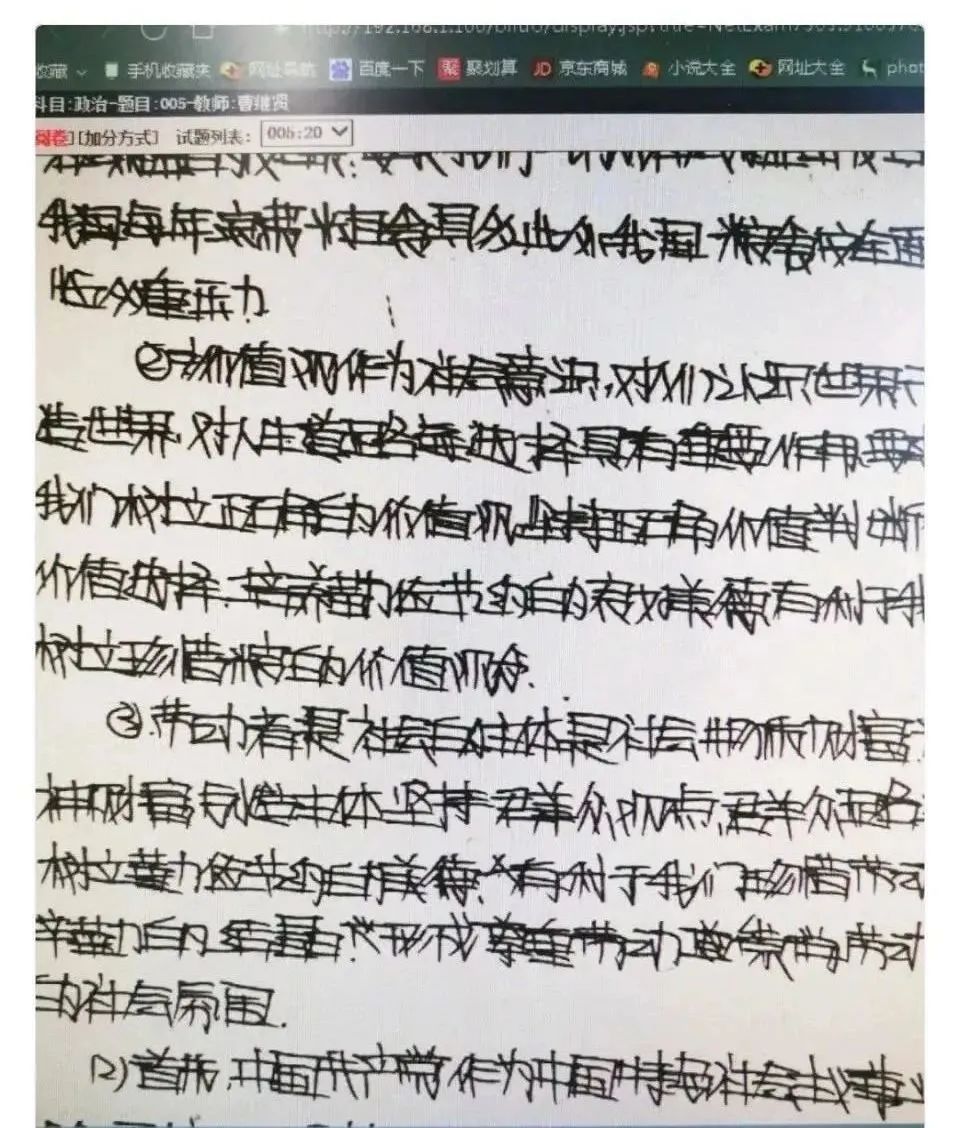 收藏 手机收藏夹 网址导航 百度一下 聚划算 JD 京东商城 小说大全 网址大全 phot
科目:政治-题目:005-教师:曹继贤
阅卷][加分方式] 试题列表: 00b:20
我国每年浪费粮食 多,此外我国粮食安全面
临众重压力.
②价值观作为社会意识,对人们认识世界
造世界,对人生道路的选择具有重要作用.要求
我们树立正确的价值观,坚持正确的价值判断
价值选择.培养勤俭节约的 美德有利于我
树立珍惜粮食的价值观念.
③.劳动者是社会的主体是社会物质财富
神财富 创造主体,坚持群众观点,群众路
树立勤俭节约的美德,有利于我们珍惜劳动
辛勤力的结 ,形成尊重劳动 劳动
的社会氛围.
(2)首先,中国共产党作为中国特色社会主义事业